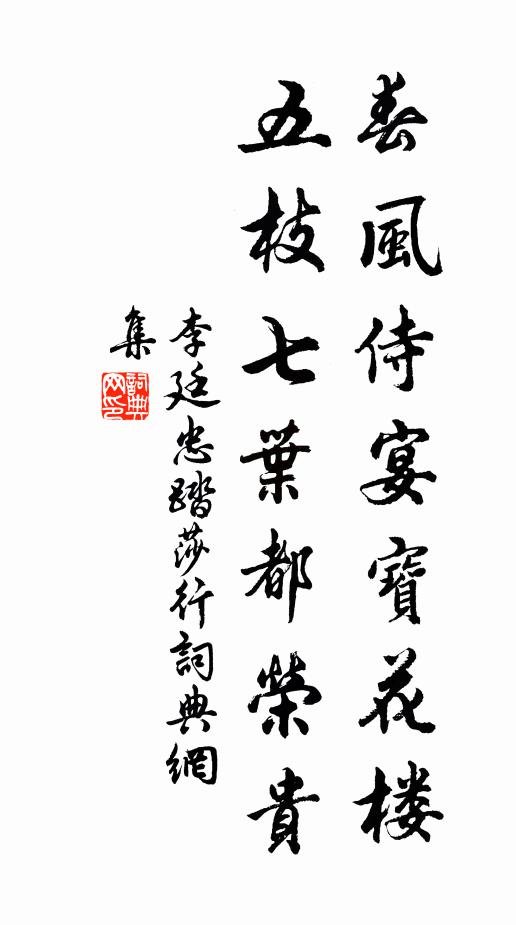 春風侍宴寶花楼
五枝七葉都榮貴
李廷忠踏莎行詞典網
集
詞典
网印